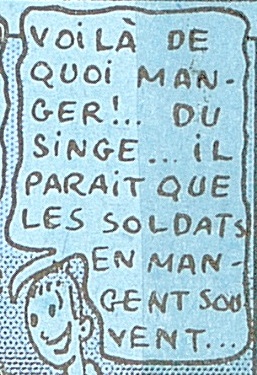 VOILÀ DE
QUOI MAN-
GER!.. DU
SINGE... IL
PARAIT QUE
LES SOLDATS
EN MAN-
GENT SOU
VENT...